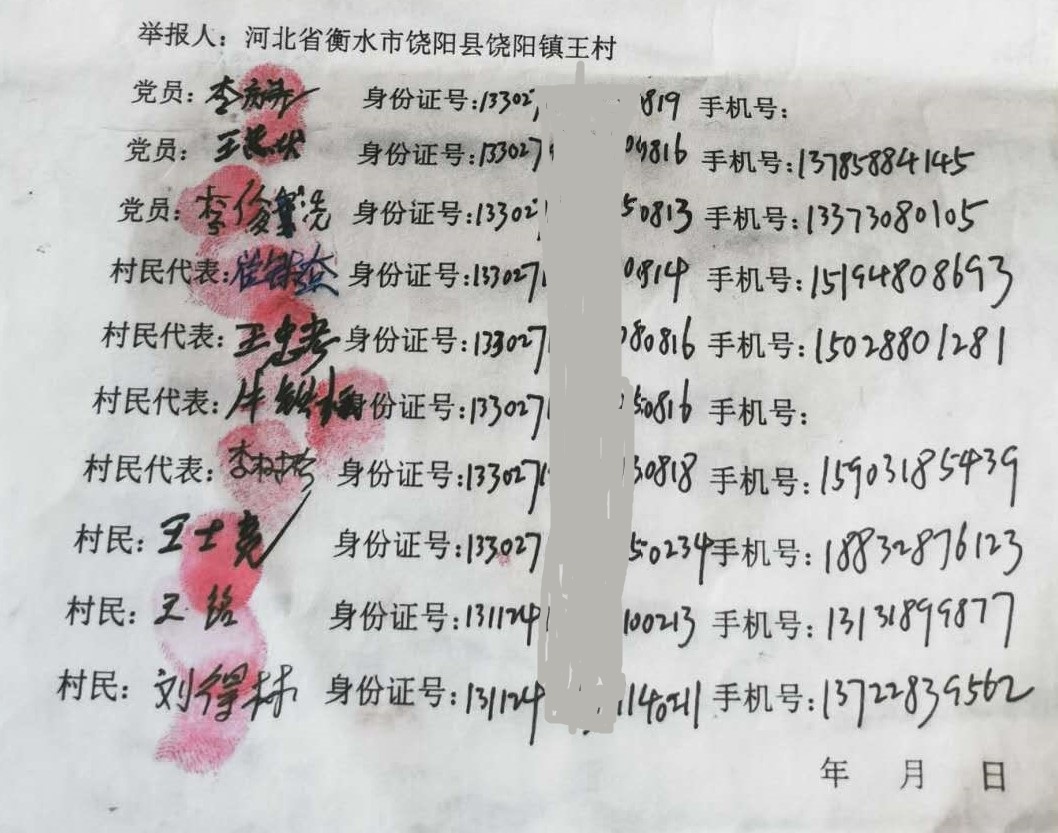 举报人：河北省衡水市饶阳县饶阳镇王村
党员：李 身份证号：13302 0819 手机号：
党员：王 身份证号：133027 09816 手机号：13785884145
党员：李俊 身份证号：13302 50813 手机号：13373080105
村民代表： 身份证号：133027 0814 手机号：15194808693
村民代表：王忠考 身份证号：133027 080816 手机号：15028801281
村民代表：牛铁 身份证号：133027 50816 手机号：
村民代表：李树 身份证号：133027 30818 手机号：15903185439
村民：王士尧 身份证号：133027 50234 手机号：18832876123
村民：王铭 身份证号：131124 100213 手机号：13131899877
村民：刘得林 身份证号：131124 114021 手机号：13722839562
年 月 日